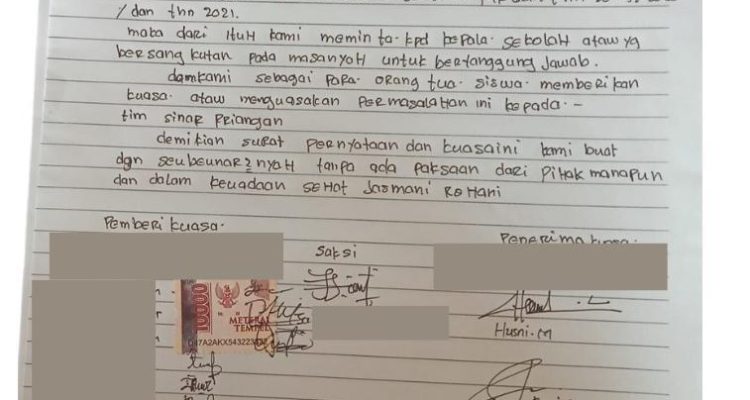 / dan thn 2021.
maka dari ituh kami meminta kpd kepala sekolah ataw yg
bersangkutan pada masanyah untuk bertanggung jawab.
damkami sebagai para orang tua siswa memberikan
kuasa ataw menguasakan permasalahan ini kepada -
tim sinar priangan
demikian surat pernyataan dan kuasaini kami buat
dgn seubeunar2nyah tanpa ada paksaan dari pihak manapun
dan dalam keuadaan sehat jasmani rohani
Pemberi kuasa.
Saksi
Penerima kuasa
10000
METERAI
TEMPEL
Husni.m